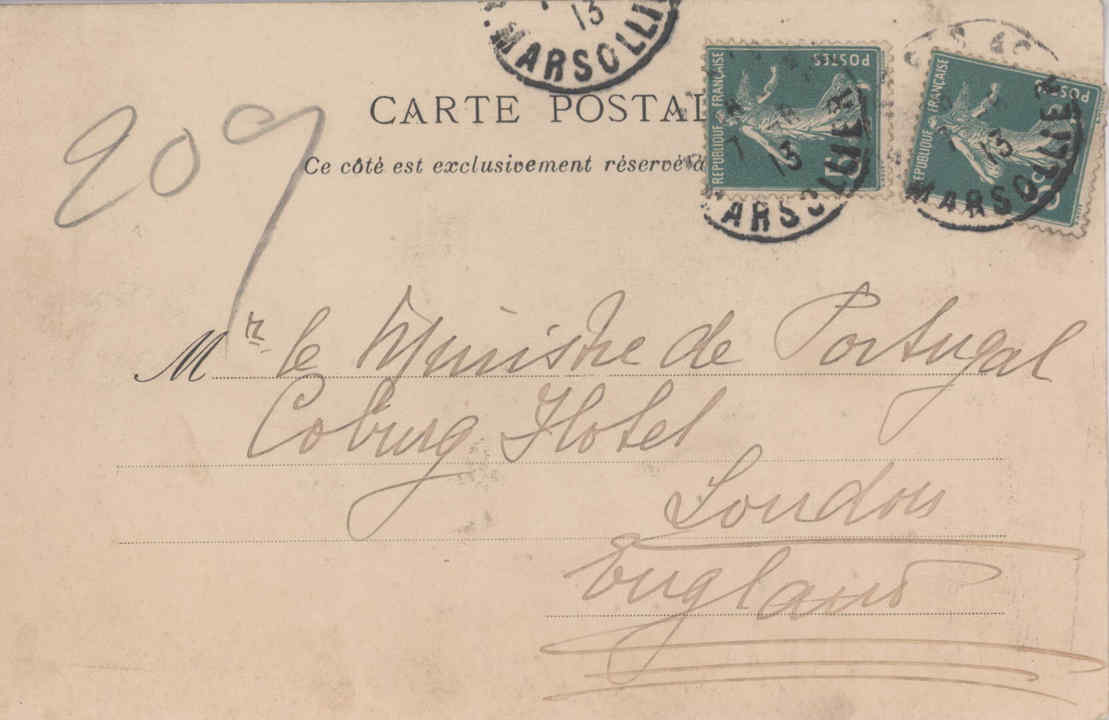 13
MARSOLLIE
CARTE POSTAL
Ce côté est exclusivement réservé à
REPUBLIQUE FRANÇAISE
POSTES
13
MARSOLLIER
REPUBLIQUE FRANÇAISE
POSTES
13
MARSOLLIER
209
Mr le Ministre de Portugal
Coburg Hotel
London
England